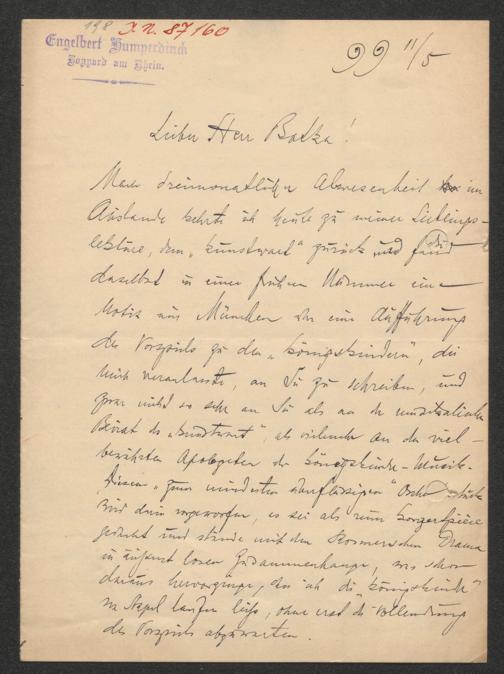 198 I.N. 87160
Engelbert Humperdinck
Boppard am Rhein.
99 11/5
Lieber Herr Batka!
Nach dreimonatlicher Abwesenheit im
Auslande kehrte ich heute zu meiner Lieblings-
lektüre, dem „Kunstwart" zurück und fand
daselbst in einer frühern Nummer eine
Notiz aus München über eine Aufführung
des Vorspiels zu den „Königskindern", die
mich veranlasste, an Sie zu schreiben, und
zwar nicht so sehr an Sie als an den musikalischen
Beirat des „Kunstwart", als vielmehr an den viel-
bewährten Apologeten der Königskinder-Musik.
Diesem „zum mindesten überflüssigen"
wird darin vorgeworfen, es sei als rein
gedacht und stände mit dem Rosmerschen Drama
in äusserst losem Zusammenhange, was schon
daraus hervorginge, dass ich die „Königskinder"
vom Stapel laufen liess, ohne erst die Vollendung
des Vorspiels abzuwarten.